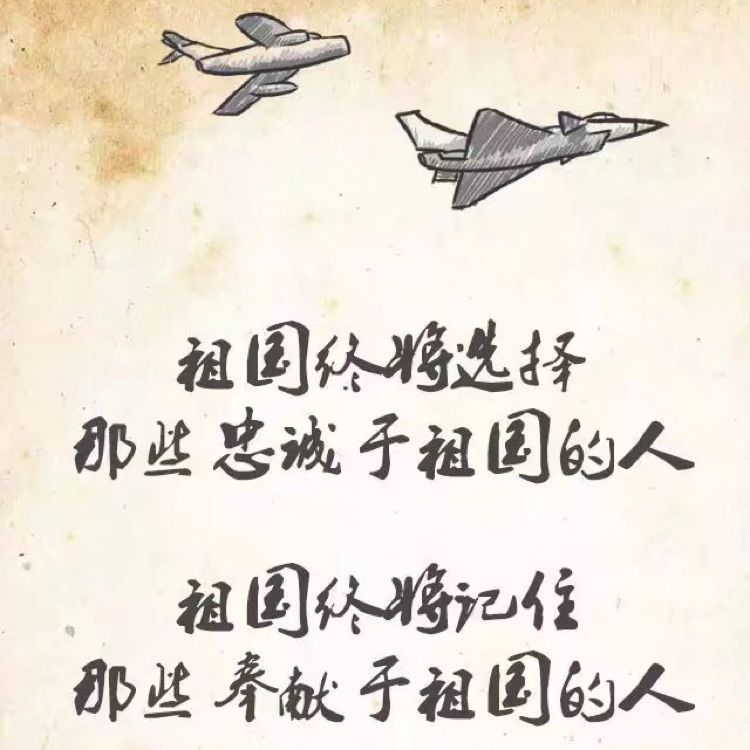 祖国终将选择
那些忠诚于祖国的人
祖国终将记住
那些奉献于祖国的人